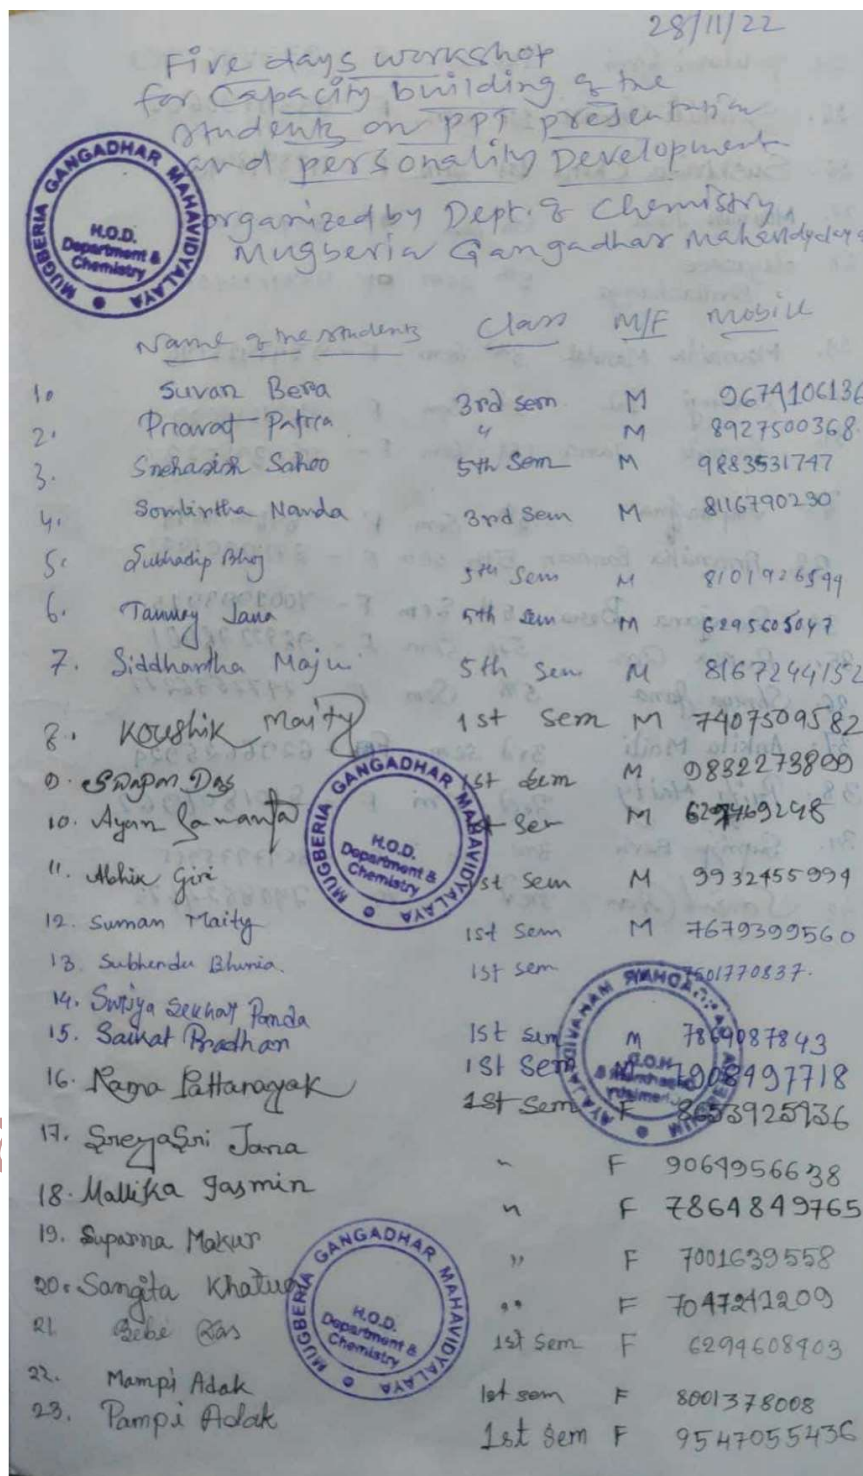 28/11/22
Five days workshop
for Capacity building of the
students on PPT presentation
and personality Development
organized by Dept. of Chemistry
Mugberia Gangadhar Mahavidyalaya
MUGBERIA GANGADHAR MAHAVIDYALAYA
H.O.D.
Department &
Chemistry
Name of the students Class M/F Mobile
1. Suvan Bera 3rd sem M 9674106136
2. Patra " M 8927500368.
3. Snehasish Sahoo 5th Sem M 9883531747
4. Sombirtha Nanda 3rd Sem M 8116790230
5. Subhadip Bhoj 5th Sem M 8101926544
6. Tanmoy Jana 5th Sem M 6295605047
7. Siddhartha Maju 5th Sem M 8167244152
8. Koushik Maity 1st Sem M 7407509582
9. Swapan Das 1st Sem M 9832273899
10. Ayan Samanta 1st Sem M
11. Abhix Giri 1st Sem M 9932455994
12. Suman Maity 1st Sem M 7679399560
13. Subhendu Bhunia. 1st Sem 7501770837.
14. Surjya Sekhar Panda
15. Saikat Pradhan 1st Sem M 7864087843
1st Sem M 7908497718
16. Rama Pattanayak 1st Sem F 8653925936
17. Sreyasri Jana " F 9064956638
18. Mallika Jasmin " F 7864849765
19. Suparna Makur " F 7001639558
20. Sangita Khatun " F 7047241209
21 Bebi Das 1st Sem F 6294608403
22. Mampi Adak 1st sem F 8001378008
23. Pampi Adak 1st Sem F 9547055436
MUGBERIA GANGADHAR MAHAVIDYALAYA
H.O.D.
Department &
Chemistry
MUGBERIA GANGADHAR MAHAVIDYALAYA
H.O.D.
Department &
Chemistry
MUGBERIA GANGADHAR MAHAVIDYALAYA
H.O.D.
Department &
Chemistry